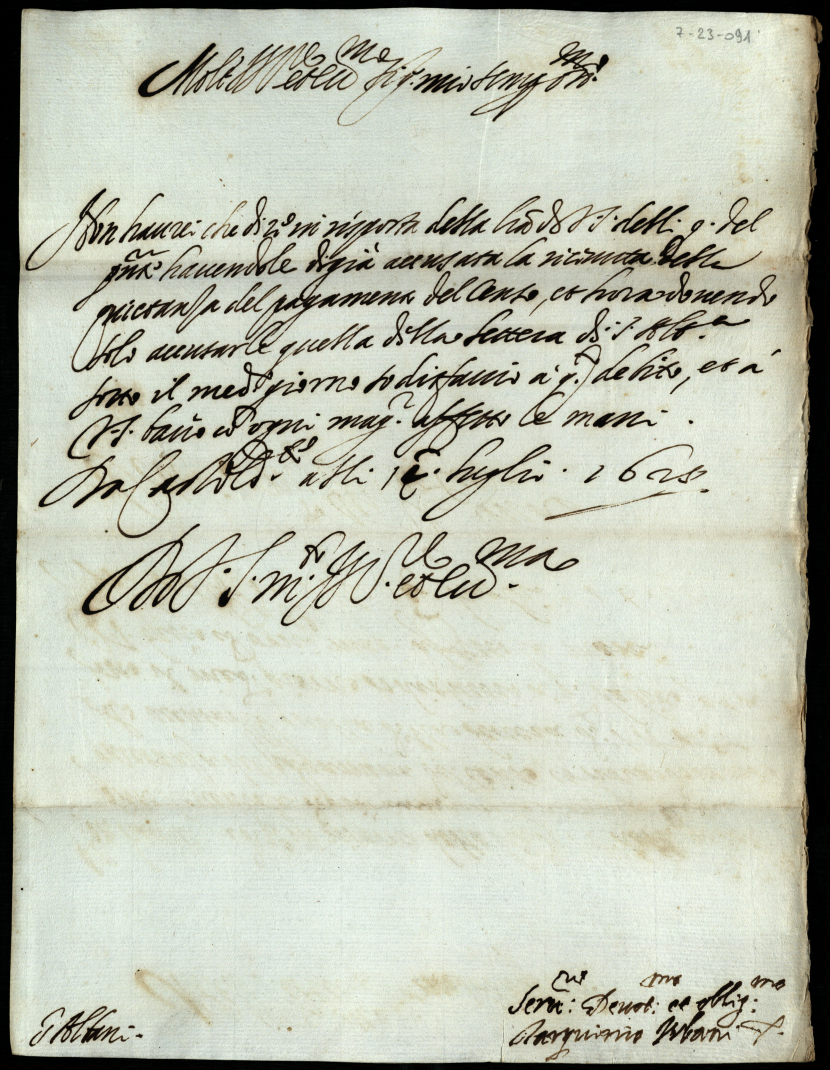 7-23-091
Molt Ill.re et ecc.mo Sig.r mio semp. oss.mo
Non haurei che dire in risposta della l̃ra di V. S. delli 9. del
p̃nte havendole di già accusata la ricevuta della
quietanza del pagamento del Censo, et hora dovendo
solo accusarle quella della lettera di S. Alt.a
sotto il med.o giorno sodisfaccio a q.to debito, et à
V. S. bacio cõ ogni mag.r affetto le mani.
Da Castel alli luglio. 1628.
Di V. S. m. Ill.re et ecc.ma
Ser.re Devot.mo et oblig.mo
Tarquinio Urbani
S. Albani.